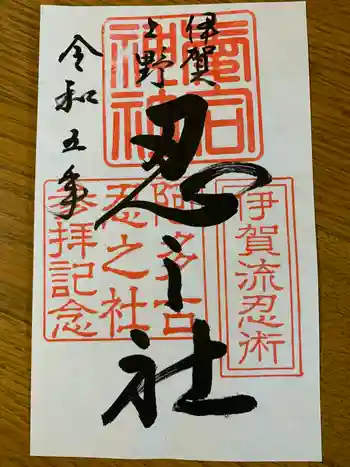 伊賀
上野
忍之社
令和五年
竃司
神社
伊賀流忍術
阿多古
忍之社
参拝記念